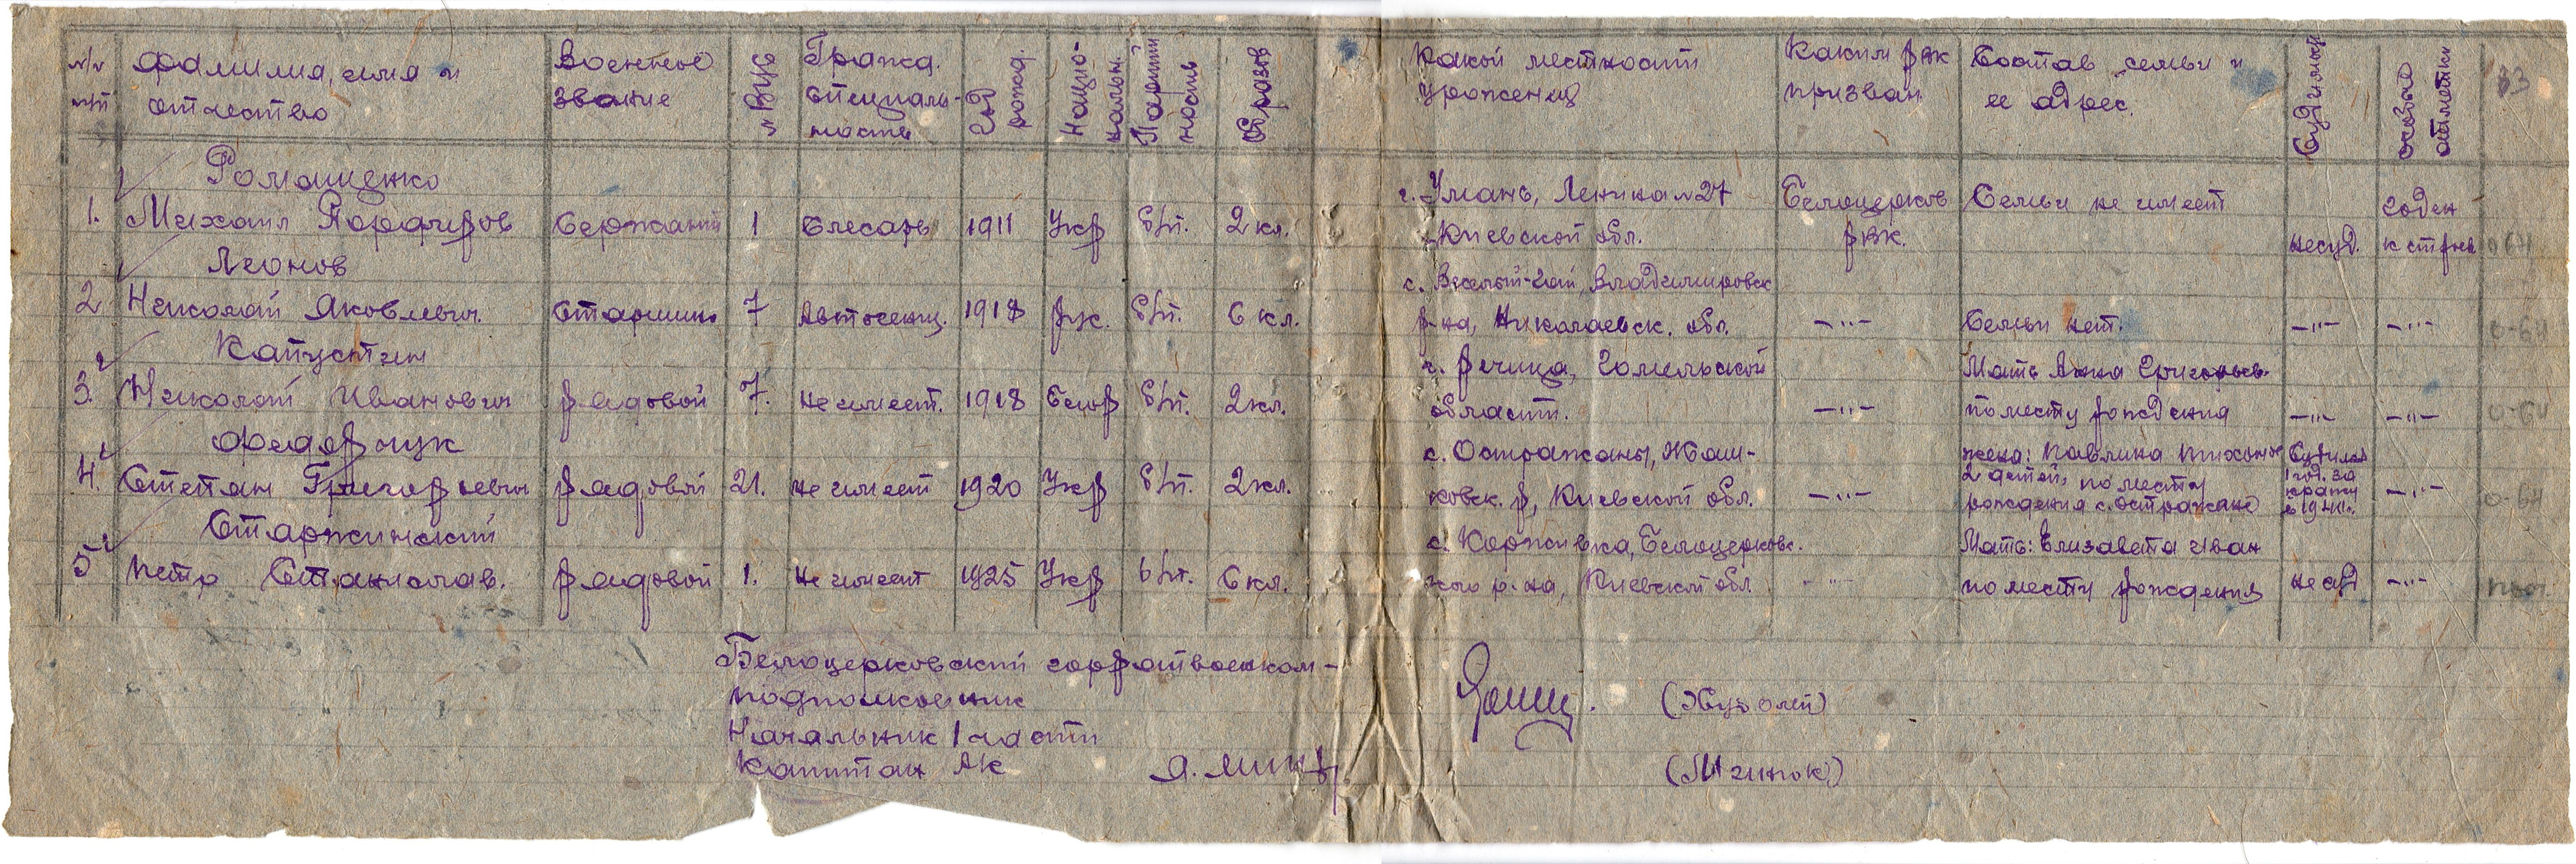 №/№ п/п | Фамилия, имя и отчество | Военное звание | № ВУС | Гражд. специальность | Год рожд. | Национальн. | Партийность | Образов | Какой местности уроженец | Каким РВК призван | Состав семьи и ее адрес. | Судимость | особые отметки | 33
Ромащенко
1. | Михаил Порфиров | Сержант | 1 | Слесарь | 1911 | Укр | б/п. | 2 кл. | г. Умань, Ленина № 27 Киевской обл. | Белоцерков РВК. | Семьи не имеет | несуд. | годен к строев
Леонов
2 | Николай Яковлевич. | Старшин. | 7 | Автосенц. | 1918 | рус. | б/п. | 6 кл. | с. Веселый-Гай, Владимировск р-на, Николаевск. обл. | —"— | Семьи нет. | —"— | —"—
Капустин
3. | Николай Иванович | рядовой | 7. | не имеет. | 1918 | Белор | б/п. | 2 кл. | г. Речица, Гомельской области. | —"— | Мать Анна Григорьев. по месту рождения | —"— | —"—
Федорчук
4. | Степан Григорьевич | рядовой | 21. | не имеет | 1920 | Укр | б/п. | 2 кл. | с. Остражаны, Жашковск. р, Киевской обл. | —"— | жена: Павлина Тихонов 2 детей, по месту рождения с. Остражане | Судился 1 год. за кражу | —"—
Старжинский
5 | Петр Станислав. | рядовой | 1. | не имеет | 1925 | Укр | б/п. | 6 кл. | с. Корживка, Белоцерковс. кого р-на, Киевской обл. | —"— | Мать: Елизавета Иван по месту рождения | не суд | —"—
Белоцерковский горрайвоенком-
подполковник (Жуволей)
Начальник 1 части
Капитан АК